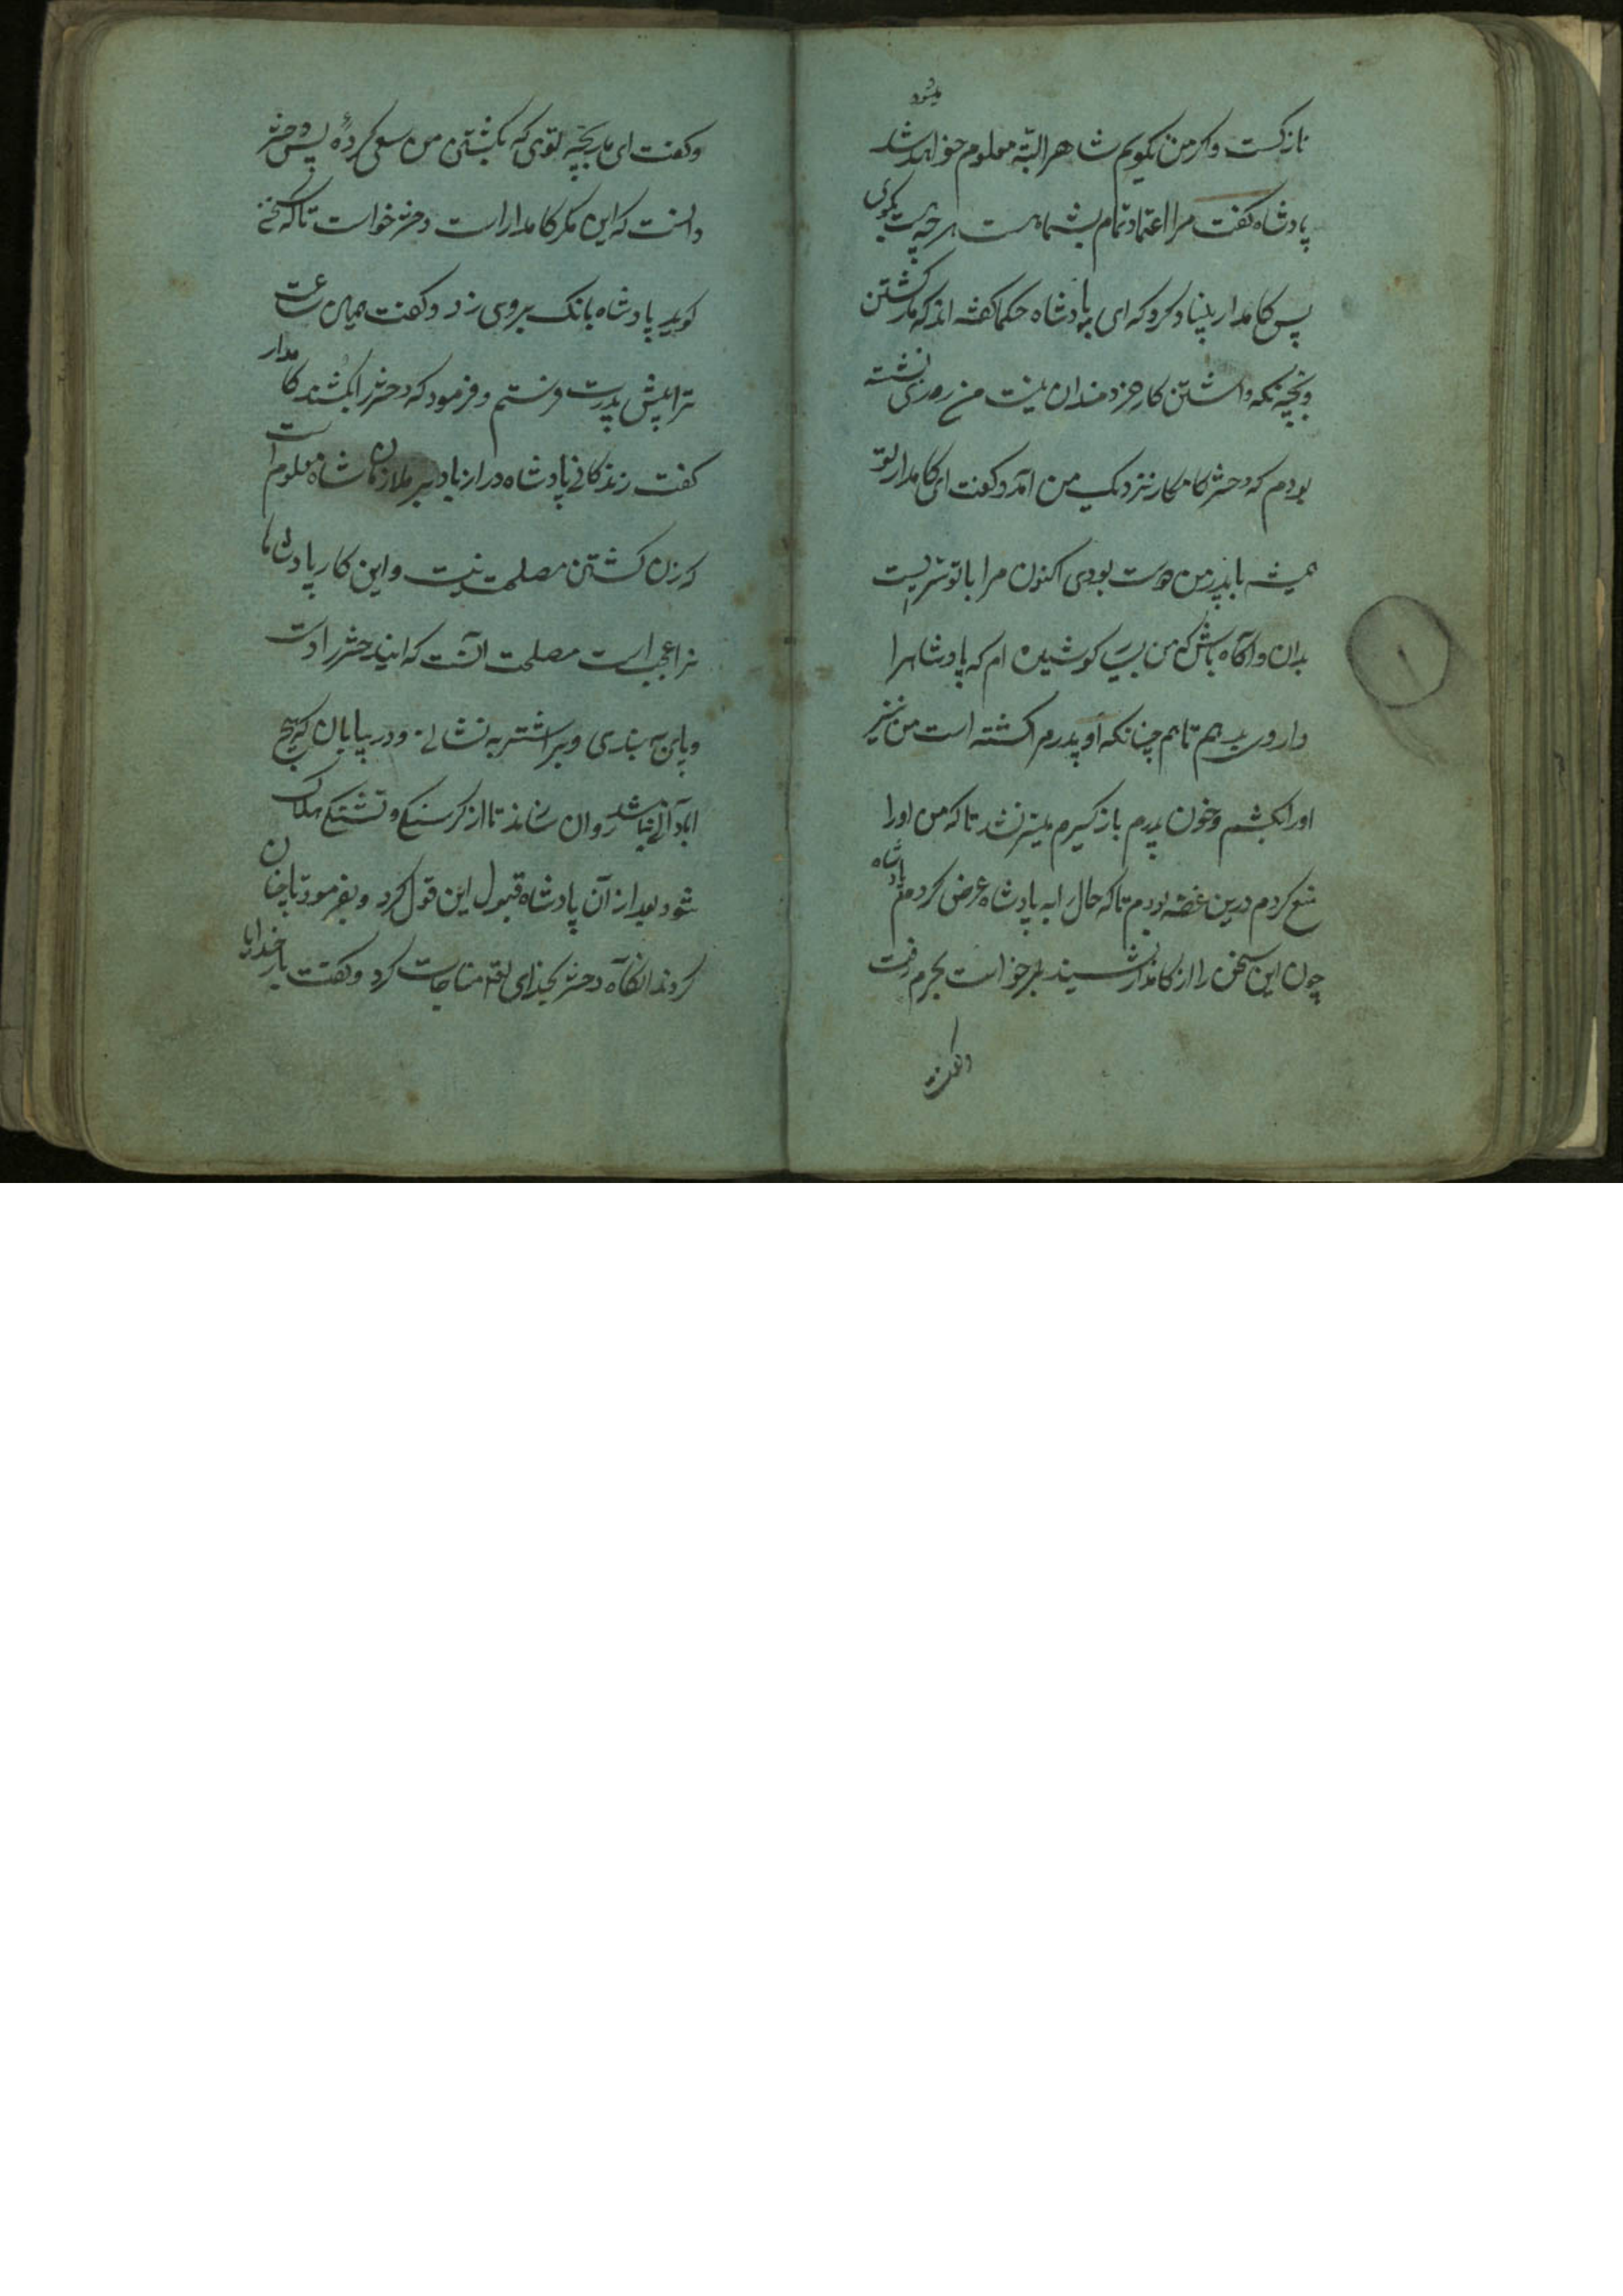 میشود
نازکست و اکر من نکویم شاهرا البته معلوم خواهد شد
پادشاه کفت مرا اعتماد تمام بشما هست هرچه هست بکوی
پس کامدار بنیاد کرد که ای پادشاه حکما کفته اند که مار کشتن
و بچه نکه داشتن کار خردمندان نیست من روزی نشسته
بودم که دختر کامکار نزدیک من آمد و کفت ای کامدار تو
همیشه با پدر من دوست بودی اکنون مرا با تو سریست
بدان و آکاه باش که من بسی کوشیده ام که پادشاهرا
دارو بدهم تا هم چنانکه او پدرم را کشته است من نیز
اورا بکشم و خون پدرم باز کیرم میسر نشد تا که من اورا
منع کردم درین غصه بودم تا که حال را به پادشاه عرض کردم پادشاه
چون این سخن را از کامدار شنید برخواست بحرم رفت
و کفت
و کفت ای مار بچه توی که بکشتن من سعی کردهٔ پس دختر
دانست که این مکر کامدار است دختر خواست تا که سخنی
کوید پادشاه بانک بروی زد و کفت همان ساعت
ترا پیش پدرت فرستم و فرمود که دختر را بکشند کامدار
کفت زندکانی پادشاه دراز باد بر ملازمان شاه معلوم است
که زن کشتن مصلحت نیست و این کار پادشاها
نرا عجب است مصلحت آنست که این دختر را دست
و پای به بندی و بر اشتر به نشانی و در بیابان که هیچ
آبادانی نباشد روان سازند تا از کرسنکی و تشنکی هلاک
شود بعد از آن پادشاه قبول این قول کرد و بفرمود تا چنان
کردند آنکاه دختر بخدای تعالی مناجات کرد و کفت بار خدایا